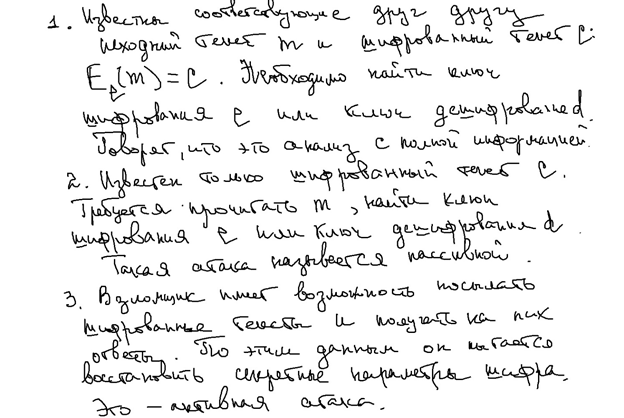 1. Известны соответствующие друг другу
исходный текст m и шифрованный текст c:
E_e(m) = c. Необходимо найти ключ
шифрования e или ключ дешифрования d.
Говорят, что это анализ с полной информацией.
2. Известен только шифрованный текст c.
Требуется прочитать m, найти ключ
шифрования e или ключ дешифрования d.
Такая атака называется пассивной.
3. Взломщик имеет возможность посылать
шифрованные тексты и получать на них
ответы. По этим данным он пытается
восстановить секретные параметры шифра.
Это – активная атака.